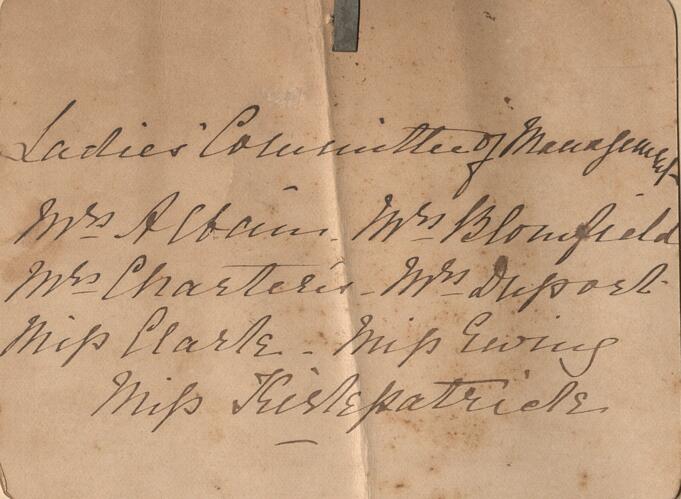 Ladies' Committee of Management
Mrs Albain - Mrs Blomfield
Mrs Charteris - Mrs Duport
Miss Clark - Miss Ewing
Miss Kirkpatrick